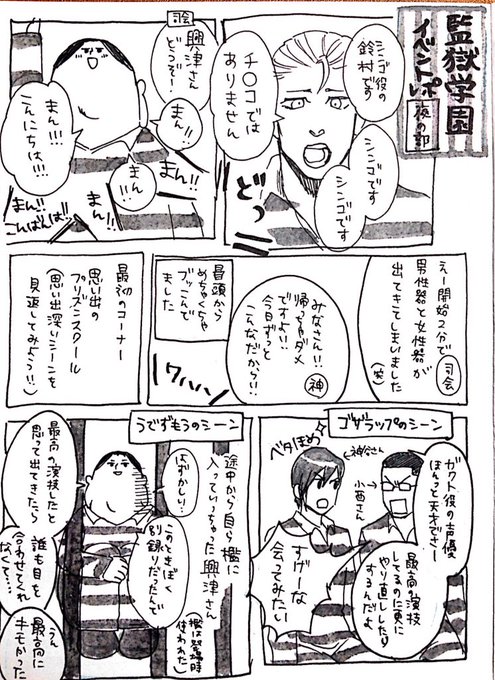 監獄学園
イベントレポ
夜の部
シンゴ役の
鈴村です
シンゴです
シンゴです
チ○コでは
ありません
どっ
司会
興津さん
どうぞ!
まん!!
まん!!
まん!!!
こんにちは!!!
まん!!
まん!!
こんばんは!!
えー開始2分で
男性器と女性器が
出てきてしまいました
(笑)
司会
みなさん!!
帰っちゃダメ
ですよ!!
今日ずっと
こんなだから!!
神
冒頭から
めちゃくちゃ
ブッこんで
ました
ワハハ
最初のコーナー
思い出の
プリズンスクール
(思い出深いシーンを
見返してみよう!!)
ゴザラップのシーン
ガクト役の声優
ほんっと天才でさー
最高の演技
してるのに更に
やり直ししたり
するんだよ
←神谷さん
小西さん
→
ベタほめ
すげーな
会ってみたい
うでずもうのシーン
途中から自ら檻に
入っていっちゃった興津さん
はずかしい…
このときぼく
別録りだったんで
(檻は登場時
使われた)
最高の演技したと
思って出てきたら
誰も目を
合わせてくれ
なくて…
最高に
キモかった
うん